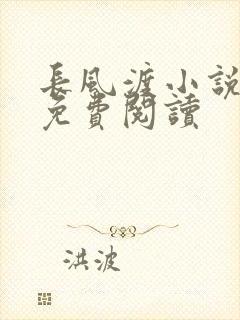 長風渡小說
免費閱讀
洪波